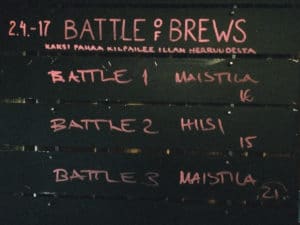 2.4.-17 BATTLE OF BREWS
KAKSI PAHAA KILPAILEE ILLAN HERRUUDESTA
BATTLE 1 MAISTILA
16
BATTLE 2 HILSI
15
BATTLE 3 MAISTILA
21